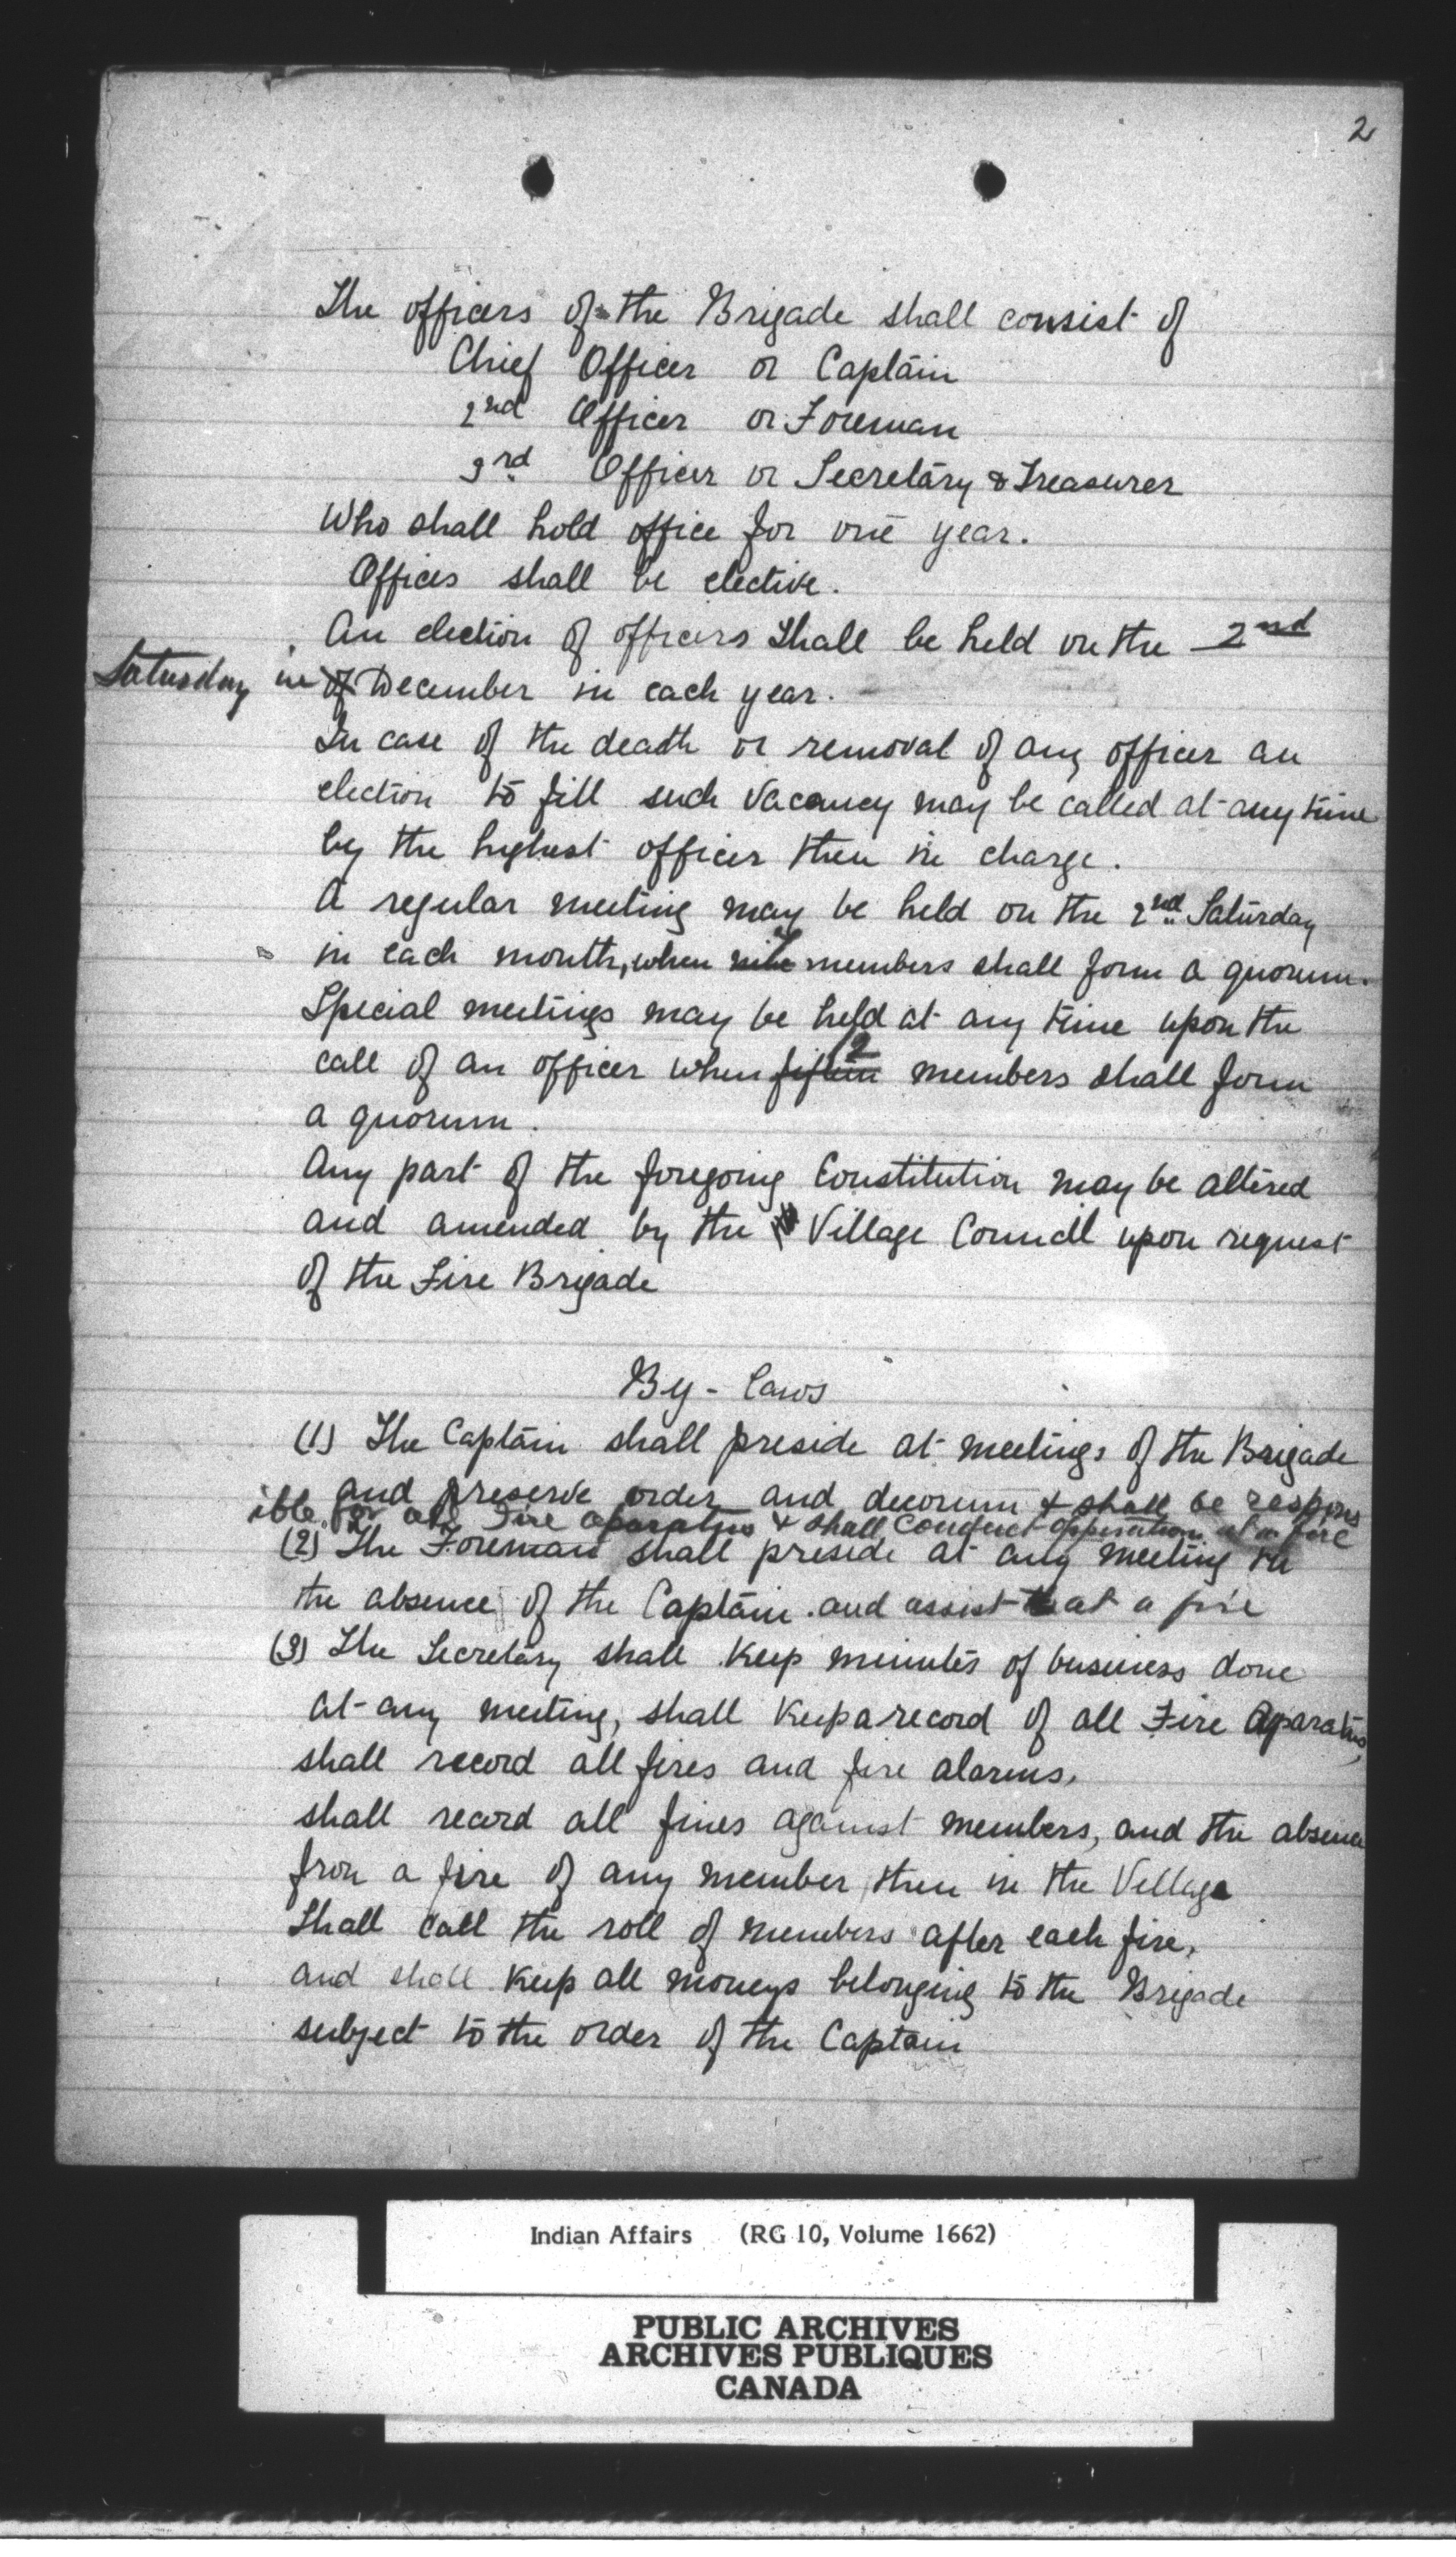 2
The officers of the Brigade shall consist of
Chief Officer or Captain
2nd Officer or Foreman
3rd Officer or Secretary & Treasurer
Who shall hold office for one year.
Offices shall be elective.
An election of officers shall be held on the 2nd
Saturday in of December in each year.
In case of the death or removal of any officer an
election to fill such vacancy may be called at any time
by the highest officer then in charge.
A regular meeting may be held on the 2nd Saturday
in each month, when members shall form a quorum.
Special meetings may be held at any time upon the
call of an officer when fifteen 12 members shall form
a quorum.
Any part of the foregoing Constitution may be altered
and amended by the Village Council upon request
of the Fire Brigade
By-laws
(1) The Captain shall preside at meetings of the Brigade
and preserve order and decorum & shall be respons
ible for all Fire aparatus & shall conduct opperations at a fire
(2) The Foreman shall preside at any meeting in
the absence of the Captain. and assist at a fire
(3) The Secretary shall keep minutes of business done
at any meeting, shall keep a record of all Fire Aparatus,
shall record all fires and fire alarms,
shall record all fines against members, and the absence
from a fire of any member then in the Village
Shall call the roll of members after each fire,
and shall keep all moneys belonging to the Brigade
subject to the order of the Captain
Indian Affairs (RG 10, Volume 1662)
PUBLIC ARCHIVES
ARCHIVES PUBLIQUES
CANADA